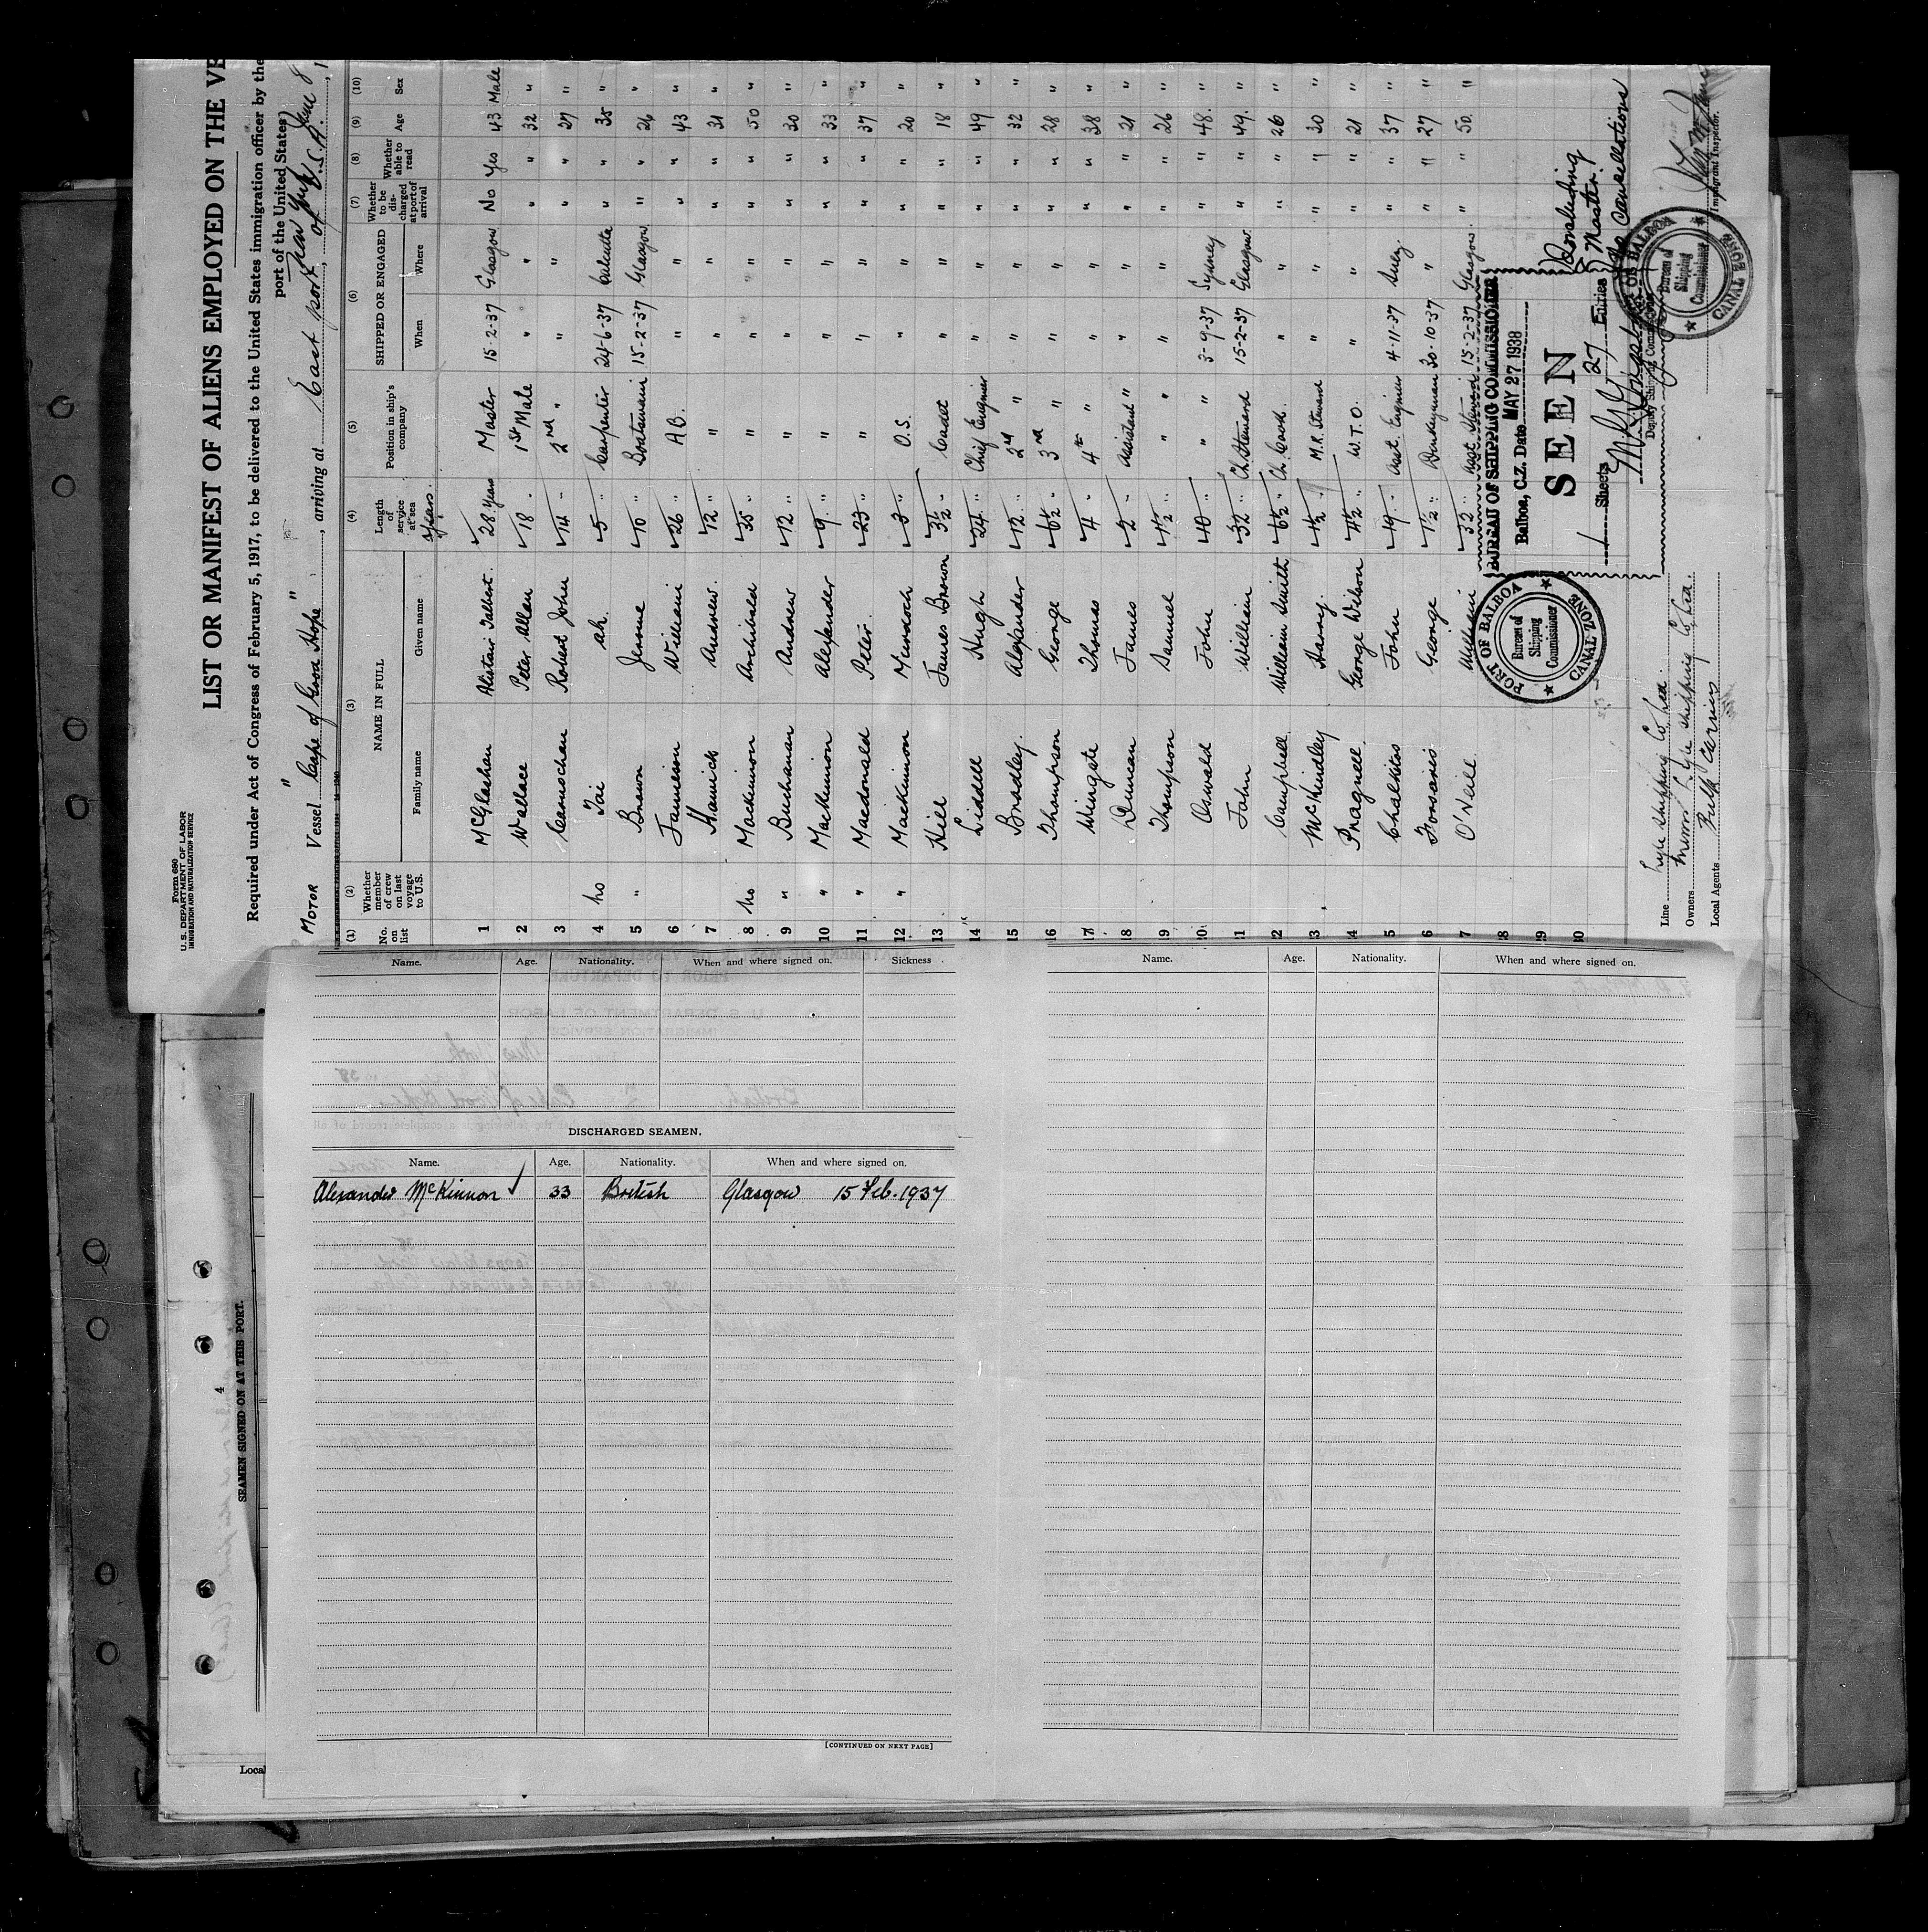 Form 680
U. S. DEPARTMENT OF LABOR
IMMIGRATION AND NATURALIZATION SERVICE
LIST OR MANIFEST OF ALIENS EMPLOYED ON THE VE
Required under Act of Congress of February 5, 1917, to be delivered to the United States immigration officer by the
port of the United States)
MOTOR Vessel " Cape of Good Hope ", arriving at East port of U.S.A. New York June 8, 1
(1) (2) (3) (4) (5) (6) (7) (8) (9) (10)
No. on list Whether member of crew on last voyage to U.S. NAME IN FULL Family name Given name Length of service at sea years. Position in ship's company SHIPPED OR ENGAGED When Where Whether to be discharged at port of arrival Whether able to read Age Sex
1 McGlashan Alistair Talbert 28 years Master 15-2-37 Glasgow No Yes 43 Male
2 Wallace Peter Allan 18 " 1st Mate " " " " 32 "
3 Carnochan Robert John 14 " 2nd " " " " " 27 "
4 no Tai Ah. 5 " Carpenter 24-6-37 Calcutta " " 35 "
5 " Brown Jerome 10 " Boatswain 15-2-37 Glasgow " " 26 "
6 Jamieson William 26 " A.B. " " " " 43 "
7 Hamick Andrew 12 " " " " " " 31 "
8 no Mackinnon Archibald 35 " " " " " " 50 "
9 " Buchanan Andrew 12 " " " " " " 30 "
10 " Mackinnon Alexander 9 " " " " " " 33 "
11 " Macdonald Peter 23 " " " " " " 37 "
12 " Mackinnon Murdoch 3 " O.S. " " " " 20 "
13 Hill James Brown 3½ " Cadet " " " " 18 "
14 Liddell Hugh 24 " Chief Engineer " " " " 49 "
15 Bradley Alexander 12 " 2nd " " " " " 32 "
16 Thompson George 6½ " 3rd " " " " " 28 "
17 Wingate Thomas 4 " 4th " " " " " 38 "
18 Duncan James 2 " Assistant " " " " " 21 "
19 Thompson Samuel 4½ " " " " " " " 26 "
20 Oswald John 10 " " 3-9-37 Sydney " " 48 "
21 John William 32 " Ch. Steward 15-2-37 Glasgow " " 49 "
22 Campbell William Smith 6½ " Ch. Cook " " " " 26 "
3 McKindley Harry 1½ " M.R. Steward " " " " 30 "
24 Pragnell George Wilson 4½ " W.T.O. " " " " 21 "
5 Chalkitis John 19 " Asst. Engineer 4-11-37 Suez " " 37 "
6 Forsaris George 1½ " Donkeyman 30-10-37 " " " 27 "
7 O'Neill William 32 " Asst. Steward 15-2-37 Glasgow " " 50 "
28
29
30
BUREAU OF SHIPPING COMMISSIONER
Balboa, C.Z. Date MAY 27 1938
SEEN
1 Sheets 27 Entries
Deputy Shipping Commissioner
PORT OF BALBOA
Bureau of Shipping Commissioner
CANAL ZONE
PORT OF BALBOA
Bureau of Shipping Commissioner
CANAL ZONE
Master.
no Cancellations
Immigrant Inspector.
Line Lyle Shipping Co Ltd
Owners Messrs Lyle Shipping Co Ltd.
Local Agents Bulk Carriers
Name. Age. Nationality. When and where signed on. Sickness
DISCHARGED SEAMEN.
Name. Age. Nationality. When and where signed on.
Alexander McKinnon 33 British Glasgow 15 Feb. 1937
[CONTINUED ON NEXT PAGE]
Name. Age. Nationality. When and where signed on.
4
SEAMEN SIGNED ON AT THIS PORT.
Local